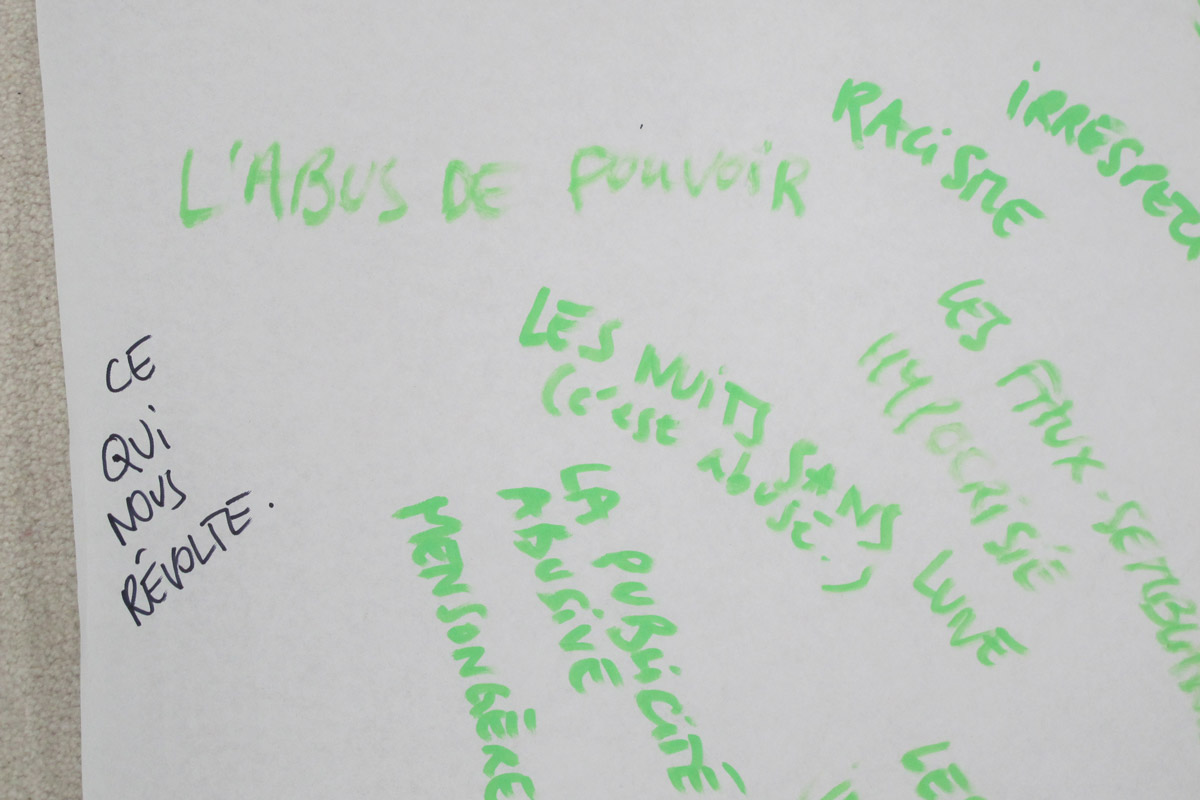 CE
QUi
NOUS
RÉVOLTE.
L'ABUS DE POUVOiR
RACiSME
LES NUiTS SANS LUNE
(c'est abusé.)
LES FAUX-
HYPOCRiSiE
LA PUBLiCiTÉ
ABUSiVE
MENSONGÈRE
LES